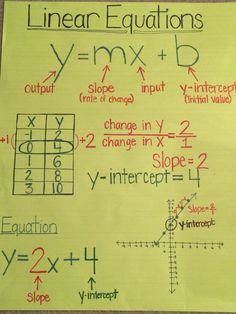 Linear Equations
y=mx+b
output
slope
(rate of change)
input
y-intercept
(initial value)
x y
-1 2
0 4
1 6
2 8
3 10
+1
+2
change in y = 2
change in x 1
Slope=2
y-intercept=4
Equation
y=2x+4
slope
y-intercept
slope=2/1
y-intercept